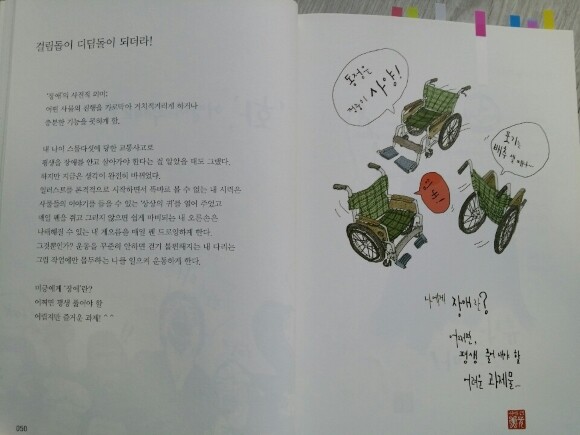 걸림돌이 디딤돌이 되더라!
'장애'의 사전적 의미:
어떤 사물의 진행을 가로막아 거치적거리게 하거나
충분한 기능을 못하게 함.
내 나이 스물다섯에 당한 교통사고로
평생을 장애를 안고 살아가야 한다는 걸 알았을 때도 그랬다.
하지만 지금은 생각이 완전히 바뀌었다.
일러스트를 본격적으로 시작하면서 똑바로 볼 수 없는 내 시력은
사물들의 이야기를 들을 수 있는 '상상의 귀'를 열어 주었고
매일 펜을 쥐고 그리지 않으면 쉽게 마비되는 내 오른손은
나태해질 수 있는 내 게으름을 매일 펜 드로잉하게 한다.
그것뿐이랴? 운동을 꾸준히 안하면 걷기 불편해지는 내 다리는
그림 작업에만 몰두하는 나를 일으켜 운동하게 한다.
'장애'란?
어쩌면 평생 풀어야 할
어렵지만 즐거운 과제! ^^
050
동정은
사양!
포기는
배추 셀 때나~
나에게 장애란?
어쩌면,
평생 풀어 나가야 할
어려운 과제물...